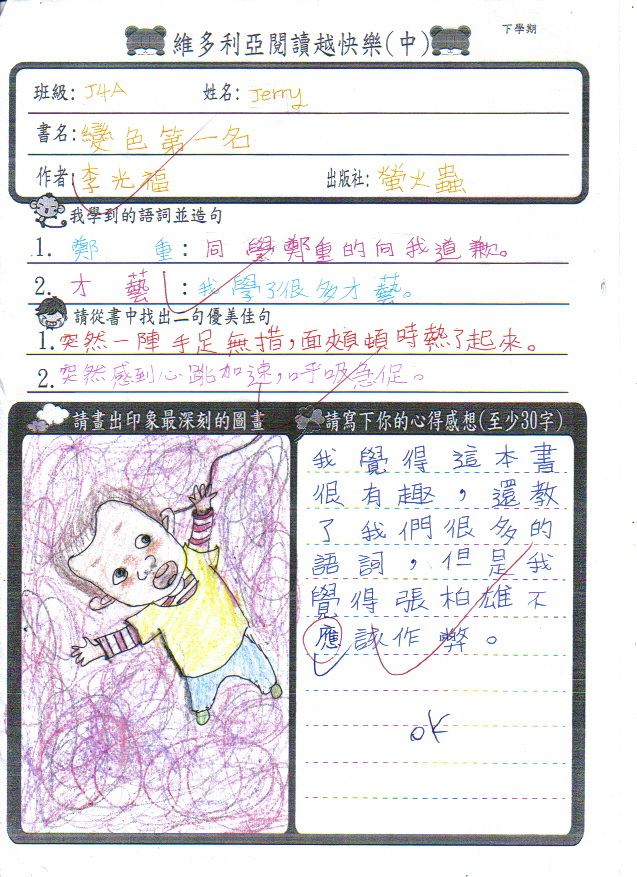 下學期
維多利亞閱讀越快樂(中)
班級: J4A 姓名: Jerry
書名: 變色第一名
作者: 李光福 出版社: 螢火蟲
我學到的語詞並造句
1. 鄭重: 同學鄭重的向我道歉。
2. 才藝: 我學了很多才藝。
請從書中找出二句優美佳句
1. 突然一陣手足無措,面頰頓時熱了起來。
2. 突然感到心跳加速,呼吸急促。
請畫出印象最深刻的圖畫
請寫下你的心得感想(至少30字)
我覺得這本書
很有趣,還教
了我們很多的
語詞,但是我
覺得張柏雄不
應該作弊。
OK